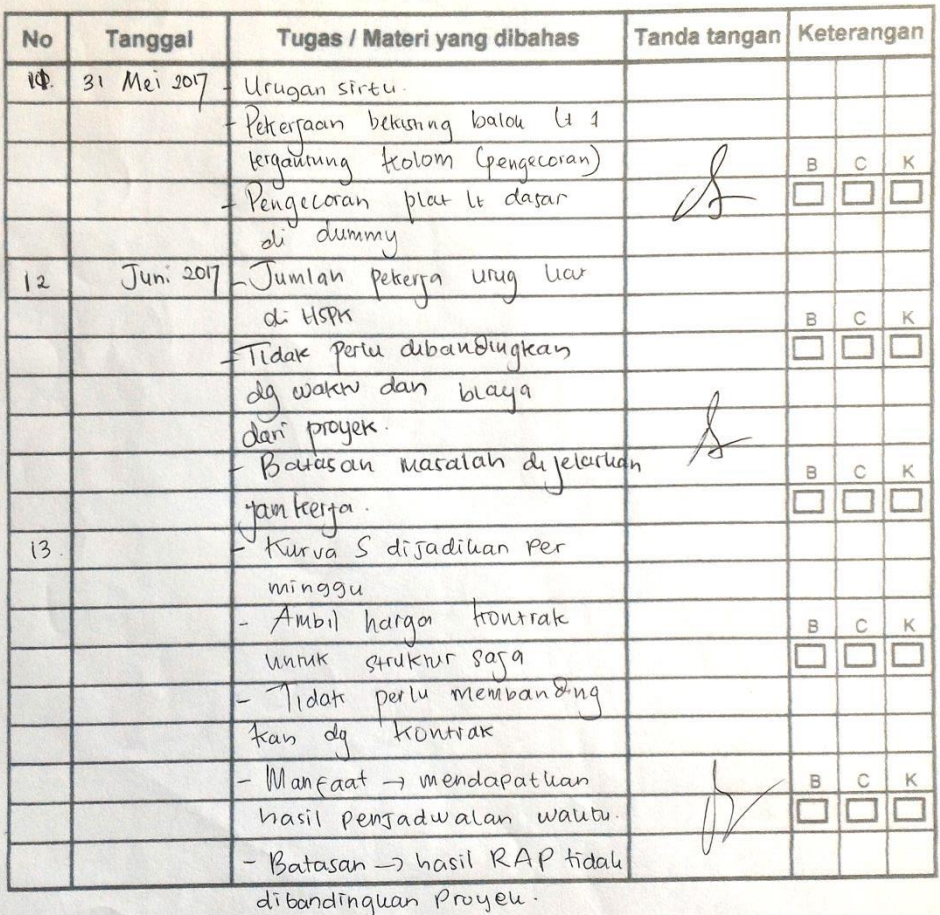 No Tanggal Tugas / Materi yang dibahas Tanda tangan Keterangan
31 Mei 2017 - Urugan sirtu.
- Pekerjaan bekisting balok lt 1
tergantung kolom (pengecoran)
B C K
- Pengecoran plat lt dasar
di dummy
12 Juni 2017 - Jumlah pekerja urug liat
di HSPK
B C K
- Tidak perlu dibandingkan
dg waktu dan biaya
dari proyek.
- Batasan masalah dijelaskan
B C K
jam kerja.
13. - Kurva S dijadikan Per
minggu
- Ambil harga kontrak
B C K
untuk struktur saja
- Tidak perlu membanding
kan dg kontrak
- Manfaat → mendapatkan
B C K
hasil penjadwalan waktu.
- Batasan → hasil RAP tidak
dibandingkan Proyek.